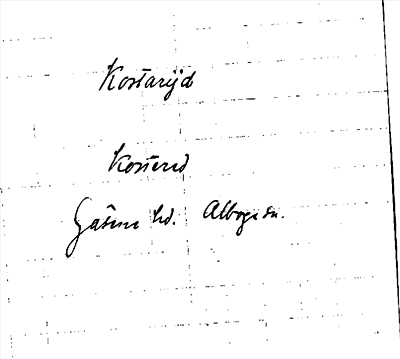 Kostarijd
Kostered
Gåsene hd. Alboga sn.